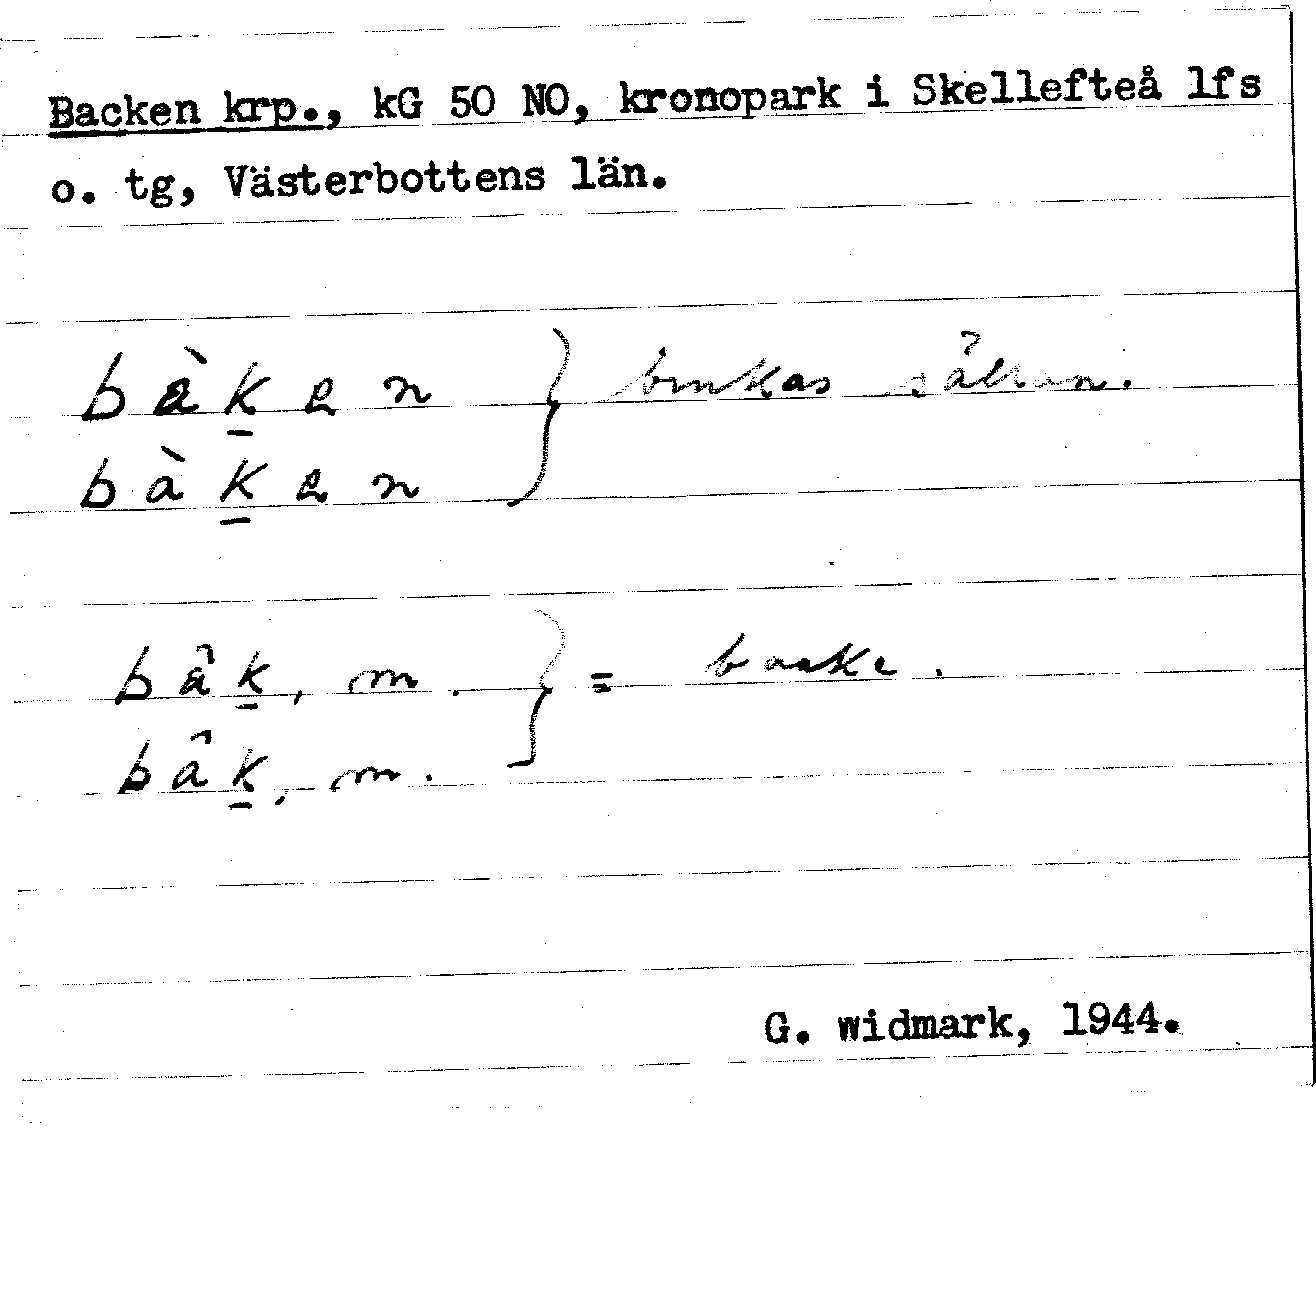 Backen krp., kG 50 NO, kronopark i Skellefteå lfs
o. tg, Västerbottens län.
bàk̲en } brukas sällan.
bàk̲en
bâk̲, m. } = backe.
bâk̲, m.
G. Widmark, 1944.